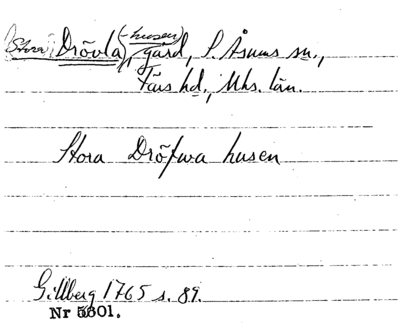 (Stora) Drövla(-husen), gård, S. Åsums sn.,
Färs hd., Mhs. län.
Stora Dröfwa husen
Gillberg 1765 s. 89.
Nr 5601.